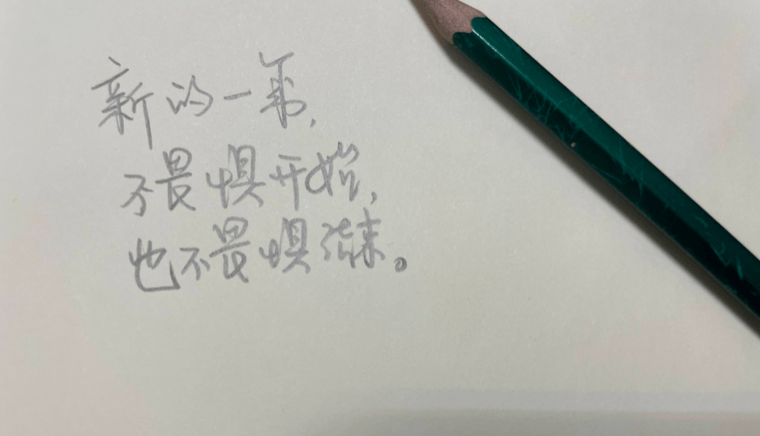 新的一年,
不畏惧开始,
也不畏惧结束。